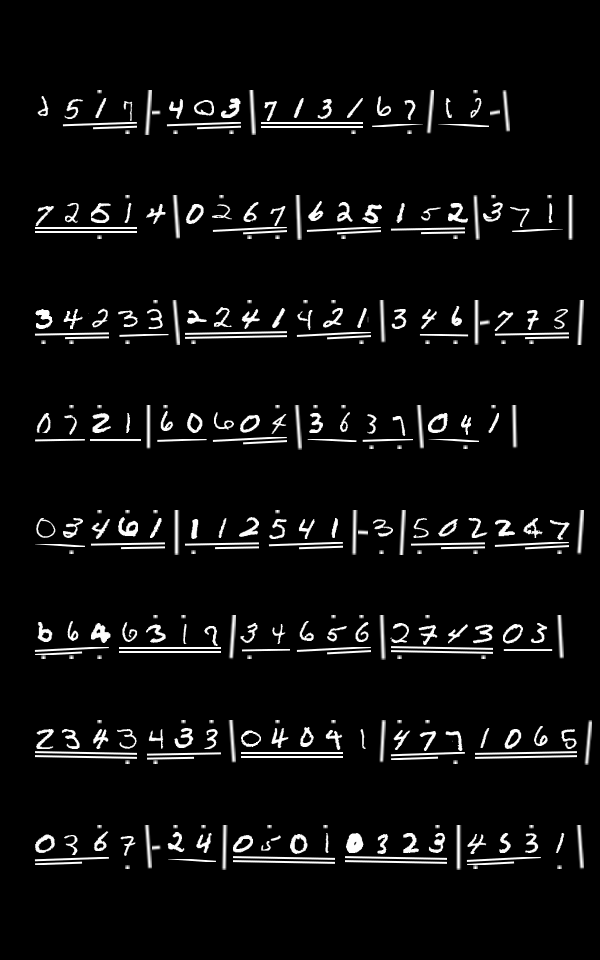 1 5 1 7 | - 4 0 3 | 7 1 3 1 6 7 | 1 2 - |
7 2 5 1 4 | 0 2 6 7 | 6 2 5 1 5 2 | 3 7 1 |
3 4 2 3 3 | 2 2 4 1 4 2 1 | 3 4 6 | - 7 7 3 |
0 7 2 1 | 6 0 6 0 4 | 3 6 3 7 | 0 4 1 |
0 3 4 6 1 | 1 1 2 5 4 1 | - 3 | 5 0 2 2 4 7 |
6 6 4 6 3 1 7 | 3 4 6 5 6 | 2 7 4 3 0 3 |
2 3 4 3 4 3 3 | 0 4 0 4 1 | 4 7 7 1 0 6 5 |
0 3 6 7 | - 2 4 | 0 5 0 1 0 3 2 3 | 4 5 3 1 |